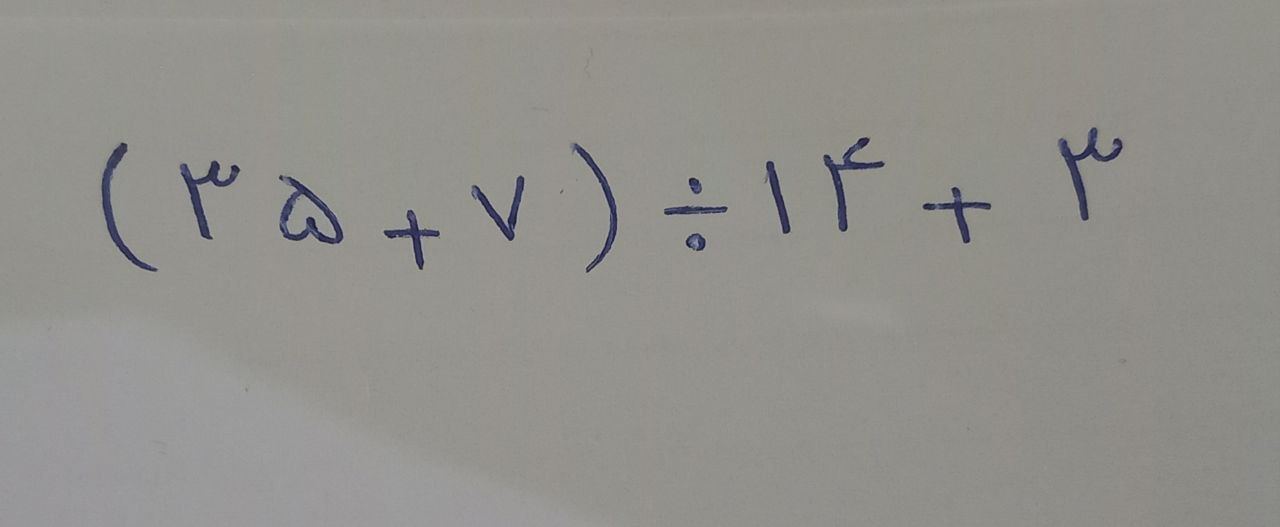 (۳۵+۷)÷۱۴+۳